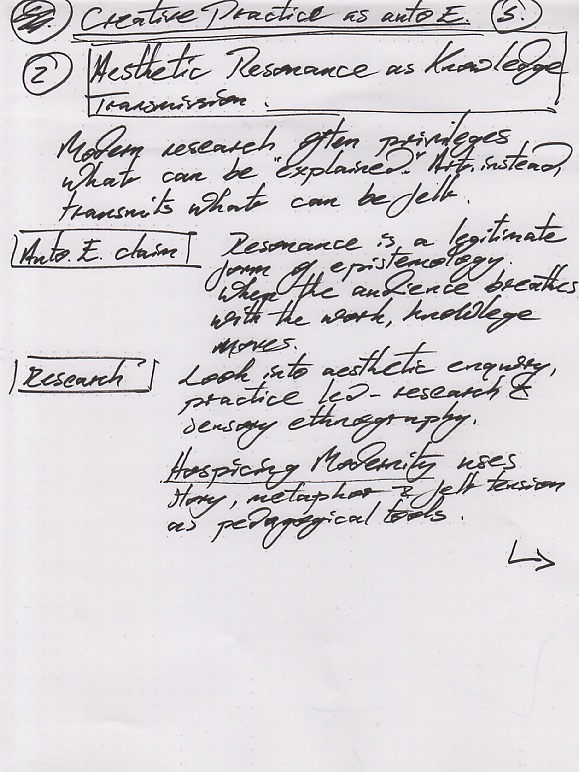 Creative Practice as auto E. 5.
2 Aesthetic Resonance as Knowledge
Transmission.
Modern research often privileges
what can be "explained." Art instead,
transmits what can be felt.
Auto E. claim Resonance is a legitimate
form of epistemology.
When the audience breaths
with the work, knowledge
moves.
Research Look into aesthetic enquiry,
practice led-research &
sensory ethnography.
Hospicing Modernity uses
story, metaphor & felt tension
as pedagogical tools.
↳